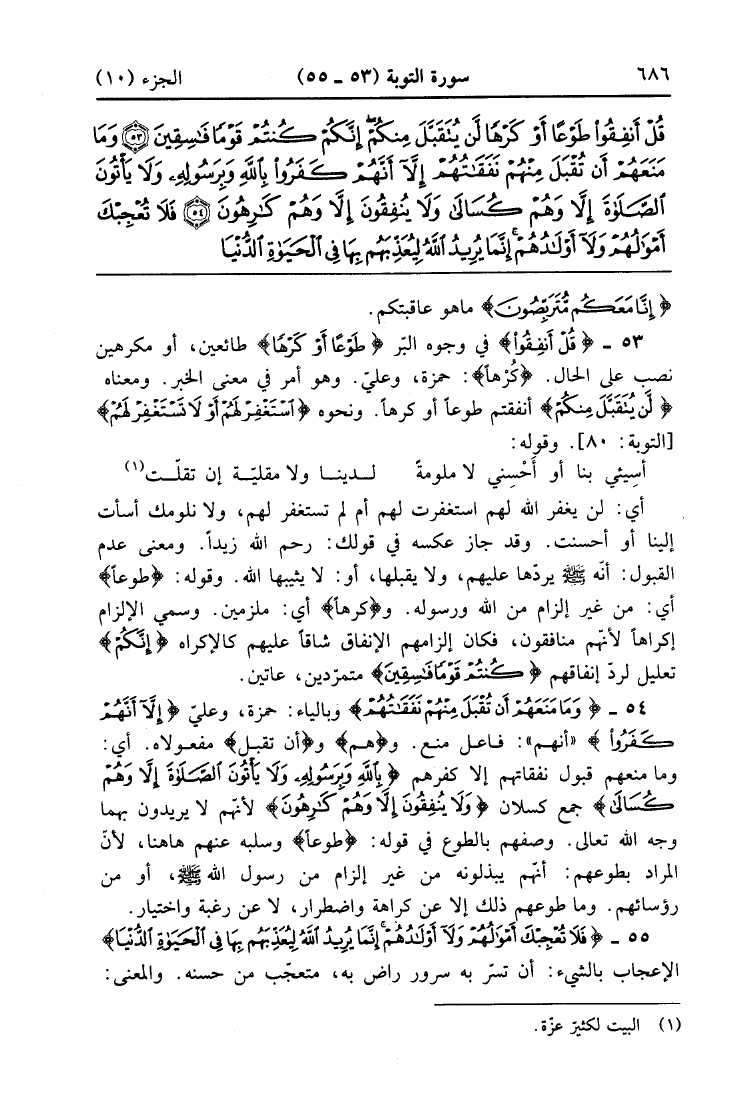 ٦٨٦ سورة التوبة (٥٣ ـ ٥٥) الجزء (١٠)
قُلْ أَنفِقُوا۟ طَوْعًا أَوْ كَرْهًا لَّن يُتَقَبَّلَ مِنكُمْ ۖ إِنَّكُمْ كُنتُمْ قَوْمًا فَٰسِقِينَ ﴿٥٣﴾ وَمَا
مَنَعَهُمْ أَن تُقْبَلَ مِنْهُمْ نَفَقَٰتُهُمْ إِلَّآ أَنَّهُمْ كَفَرُوا۟ بِٱللَّهِ وَبِرَسُولِهِۦ وَلَا يَأْتُونَ
ٱلصَّلَوٰةَ إِلَّا وَهُمْ كُسَالَىٰ وَلَا يُنفِقُونَ إِلَّا وَهُمْ كَٰرِهُونَ ﴿٥٤﴾ فَلَا تُعْجِبْكَ
أَمْوَٰلُهُمْ وَلَآ أَوْلَٰدُهُمْ ۚ إِنَّمَا يُرِيدُ ٱللَّهُ لِيُعَذِّبَهُم بِهَا فِى ٱلْحَيَوٰةِ ٱلدُّنْيَا
﴿إِنَّا مَعَكُم مُّتَرَبِّصُونَ﴾ ماهو عاقبتكم.
٥٣ ـ ﴿قُلْ أَنفِقُوا۟﴾ في وجوه البّر ﴿طَوْعًا أَوْ كَرْهًا﴾ طائعين، أو مكرهين
نصب على الحال. ﴿كُرْهاً﴾: حمزة، وعليّ. وهو أمر في معنى الخبر. ومعناه
﴿لَّن يُتَقَبَّلَ مِنكُمْ﴾ أنفقتم طوعاً أو كرهاً. ونحوه ﴿ٱسْتَغْفِرْ لَهُمْ أَوْ لَا تَسْتَغْفِرْ لَهُمْ﴾
[التوبة: ٨٠]. وقوله:
أسِيئي بنا أو أَحْسِني لا ملومةً لــدينــا ولا مقليّــة إن تقلّــت(١)
أي: لن يغفر الله لهم استغفرت لهم أم لم تستغفر لهم، ولا نلومك أسأت
إلينا أو أحسنت. وقد جاز عكسه في قولك: رحم الله زيداً. ومعنى عدم
القبول: أنّه ﷺ يردّها عليهم، ولا يقبلها، أو: لا يثيبها الله. وقوله: ﴿طوعاً﴾
أي: من غير إلزام من الله ورسوله. و﴿كرهاً﴾ أي: ملزمين. وسمي الإلزام
إكراهاً لأنهّم منافقون، فكان إلزامهم الإنفاق شاقاً عليهم كالإكراه ﴿إِنَّكُمْ﴾
تعليل لردّ إنفاقهم ﴿كُنتُمْ قَوْمًا فَٰسِقِينَ﴾ متمرّدين، عاتين.
٥٤ ـ ﴿وَمَا مَنَعَهُمْ أَن تُقْبَلَ مِنْهُمْ نَفَقَٰتُهُمْ﴾ وبالياء: حمزة، وعليّ ﴿إِلَّآ أَنَّهُمْ
كَفَرُوا۟﴾ «أنهم»: فاعل منع. و﴿هم﴾ و﴿أن تقبل﴾ مفعولاه. أي:
وما منعهم قبول نفقاتهم إلا كفرهم ﴿بِٱللَّهِ وَبِرَسُولِهِۦ وَلَا يَأْتُونَ ٱلصَّلَوٰةَ إِلَّا وَهُمْ
كُسَالَىٰ﴾ جمع كسلان ﴿وَلَا يُنفِقُونَ إِلَّا وَهُمْ كَٰرِهُونَ﴾ لأنهّم لا يريدون بهما
وجه الله تعالى. وصفهم بالطوع في قوله: ﴿طوعاً﴾ وسلبه عنهم هاهنا، لأنّ
المراد بطوعهم: أنهّم يبذلونه من غير إلزام من رسول الله ﷺ، أو من
رؤسائهم. وما طوعهم ذلك إلا عن كراهة واضطرار، لا عن رغبة واختيار.
٥٥ ـ ﴿فَلَا تُعْجِبْكَ أَمْوَٰلُهُمْ وَلَآ أَوْلَٰدُهُمْ ۚ إِنَّمَا يُرِيدُ ٱللَّهُ لِيُعَذِّبَهُم بِهَا فِى ٱلْحَيَوٰةِ ٱلدُّنْيَا﴾
الإعجاب بالشيء: أن تسرّ به سرور راض به، متعجّب من حسنه. والمعنى:
(١) البيت لكثيّر عزّة.